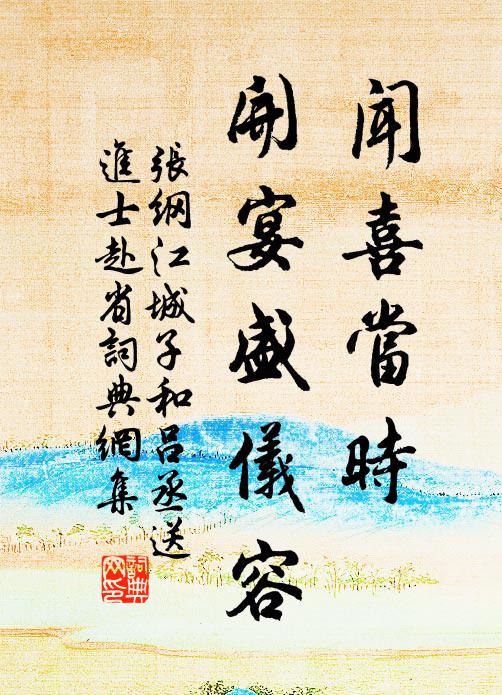 聞喜當時
開宴盛儀容
張綱江城子和呂丞送
進士赴省詞典網集
詞典
网印